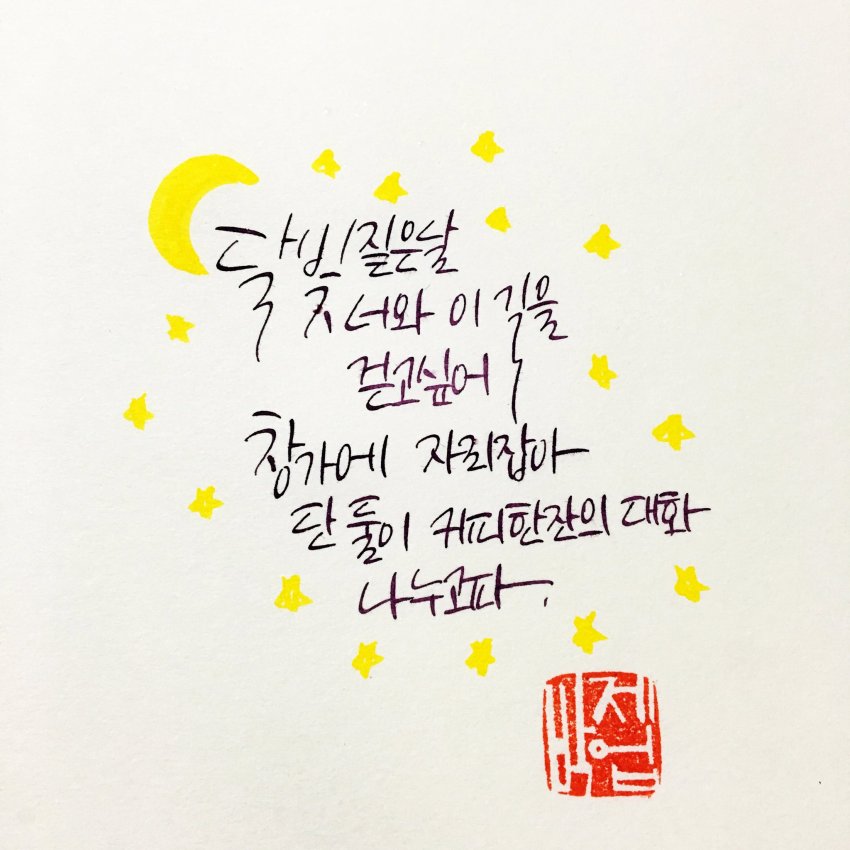 달빛 짙은날
너와 이 길을
걷고싶어
창가에 자리잡아
단 둘이 커피한잔의 대화
나누고파.
제업